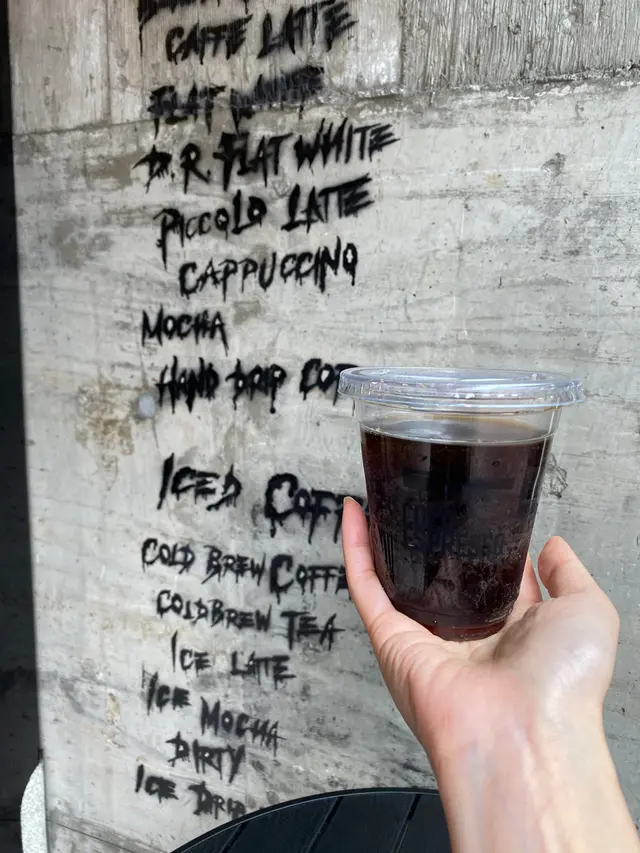 CAFFE LATTE
FLAT WHITE
D.R. FLAT WHITE
PICCOLO LATTE
CAPPUCCINO
MOCHA
HAND DRIP COF
ICED COFF
COLD BREW COFFE
COLDBREW TEA
ICE LATTE
ICE MOCHA
DIRTY
ICE DRIP
ESPRESSO